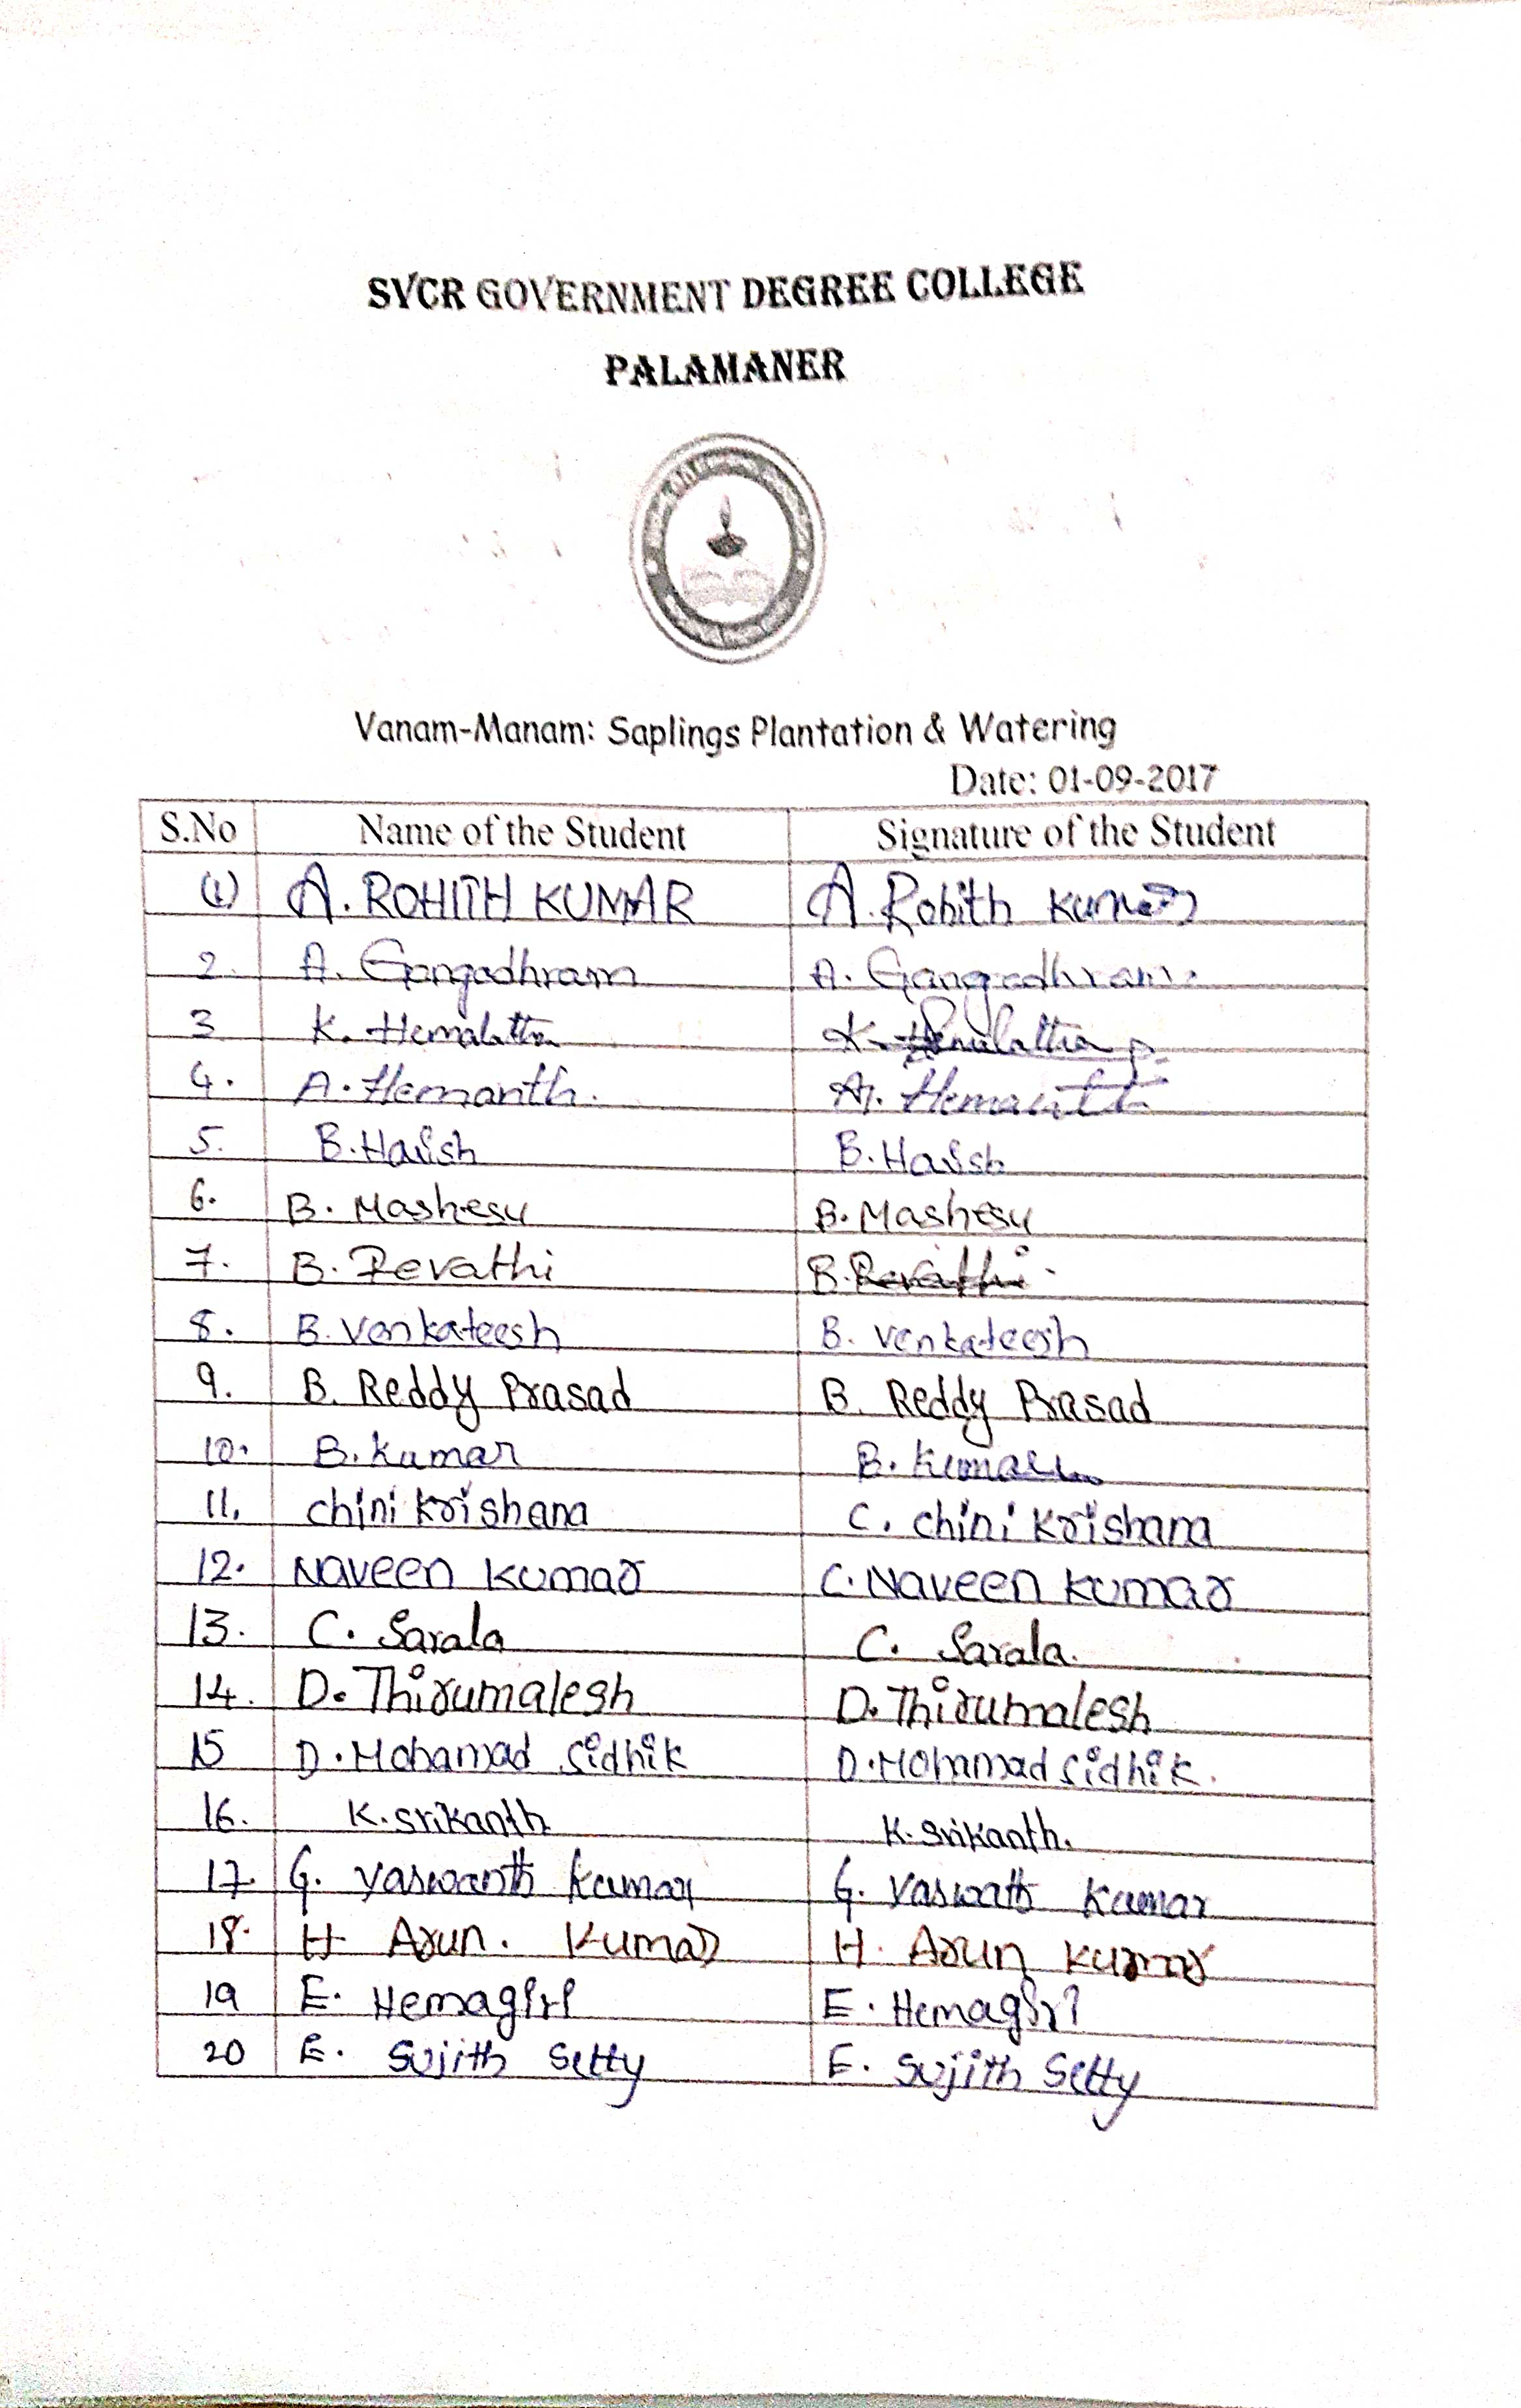 SVCR GOVERNMENT DEGREE COLLEGE
PALAMANER
Vanam-Manam: Saplings Plantation & Watering
Date: 01-09-2017
S.No Name of the Student Signature of the Student
(1) A. ROHITH KUMAR A. Rohith Kumar
2. A. Gangadhram A. Gangadhram.
3 K. Hemalatha K. Hemalatha
4. A. Hemanth. A. Hemanth
5. B. Harish B. Harish
6. B. Mashesu B. Mashesu
7. B. Revathi B. Revathi
8. B. Venkateesh B. Venkateesh
9. B. Reddy Prasad B. Reddy Prasad
10. B. Kumar B. Kumar
11. chini krishana C. chini krishana
12. Naveen Kumar C. Naveen Kumar
13. C. Sarala C. Sarala.
14. D. Thirumalesh D. Thirumalesh
15 D. Mohamad Sidhik D. Mohammad Sidhik.
16. K. Srikanth K. Srikanth.
17. G. Yaswanth Kumar G. Yaswath Kumar
18. H Arun. Kumar H. Arun Kumar
19 E. Hemagiri E. Hemagiri
20 E. Sujith Setty E. Sujith Setty